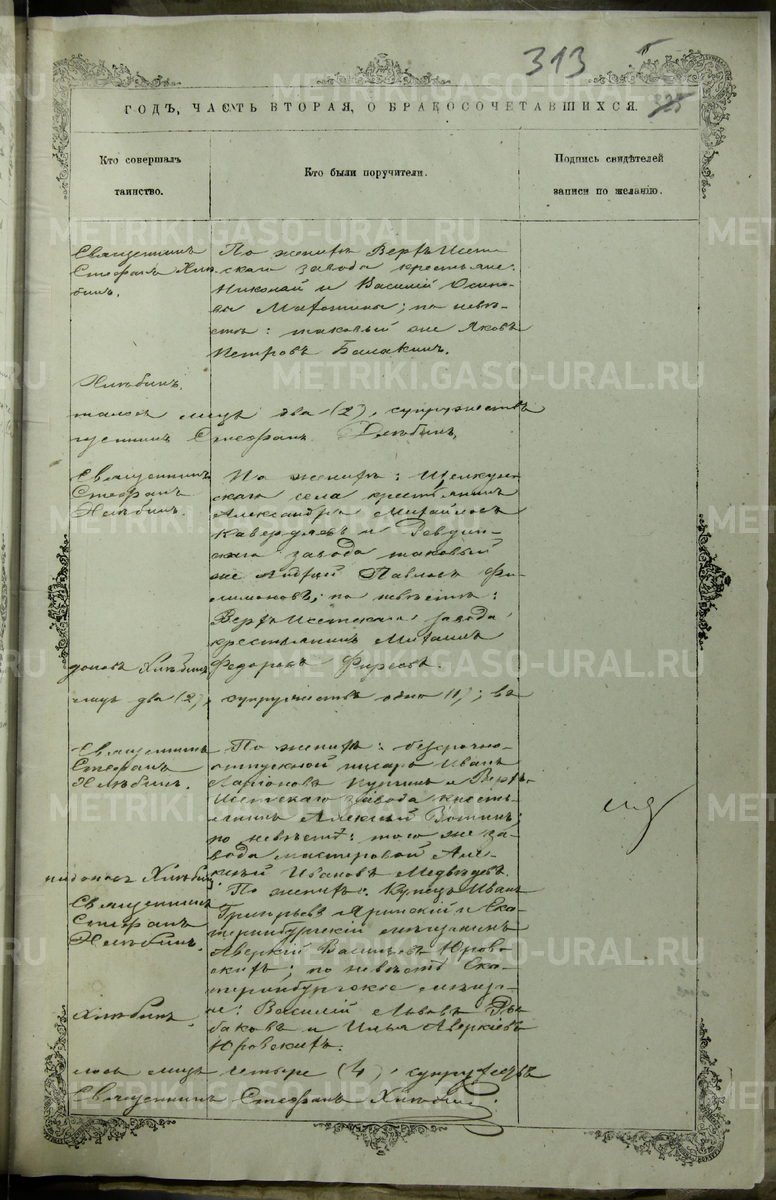 313
ГОДЪ, ЧАСТЬ ВТОРАЯ, О БРАКОСОЧЕТАВШИХСЯ.
Кто совершалъ
таинство.
Кто были поручители.
Подпись свидѣтелей
записи по желанію.
Священникъ
Стефанъ Хлѣ-
бинъ.
По женихѣ Верхъ-Исет-
скаго завода крестьяне:
Николай и Василій Осипо-
вы Матошины; по невѣ-
стѣ: таковый же Яковъ
Петровъ Балакинъ.
Хлѣбинъ.
лицъ два (2), супружествъ
Стефанъ Хлѣбинъ
Священникъ
Стефанъ
Хлѣбинъ.
По женихѣ: Щелкун-
скаго села крестьянинъ
Александръ Михайловъ
и Ревдин-
скаго завода таковый
же Андрей Павловъ Фи-
лимоновъ; по невѣстѣ:
Верхъ-Исетскаго завода
крестьянинъ Михаилъ
Федоровъ Фирсовъ.
Хлѣбинъ
лицъ два (2), супружествъ одно (1); въ
Священникъ
Стефанъ
Хлѣбинъ.
По женихѣ: безсрочно-
отпускной писарь Иванъ
Ларіоновъ и Верхъ-
Исетскаго завода кресть-
янинъ Алексѣй
по невѣстѣ: того же за-
вода мастеровой Але-
ксѣй Ивановъ Медвѣдевъ.
Хлѣбинъ
Священникъ
Стефанъ
Хлѣбинъ.
По женихѣ: Купецъ Иванъ
Григорьевъ Яринскій и Ека-
теринбургскій мѣщанинъ
Аверкій Васильевъ Юров-
скихъ; по невѣстѣ Ека-
теринбургскіе мѣща-
не: Василій Львовъ Ры-
баковъ и Илья Аверкіевъ
Юровскихъ.
Хлѣбинъ.
лось лицъ четыре (4), супружествъ
Священникъ Стефанъ Хлѣбинъ.
METRIKI.GASO-URAL.RU